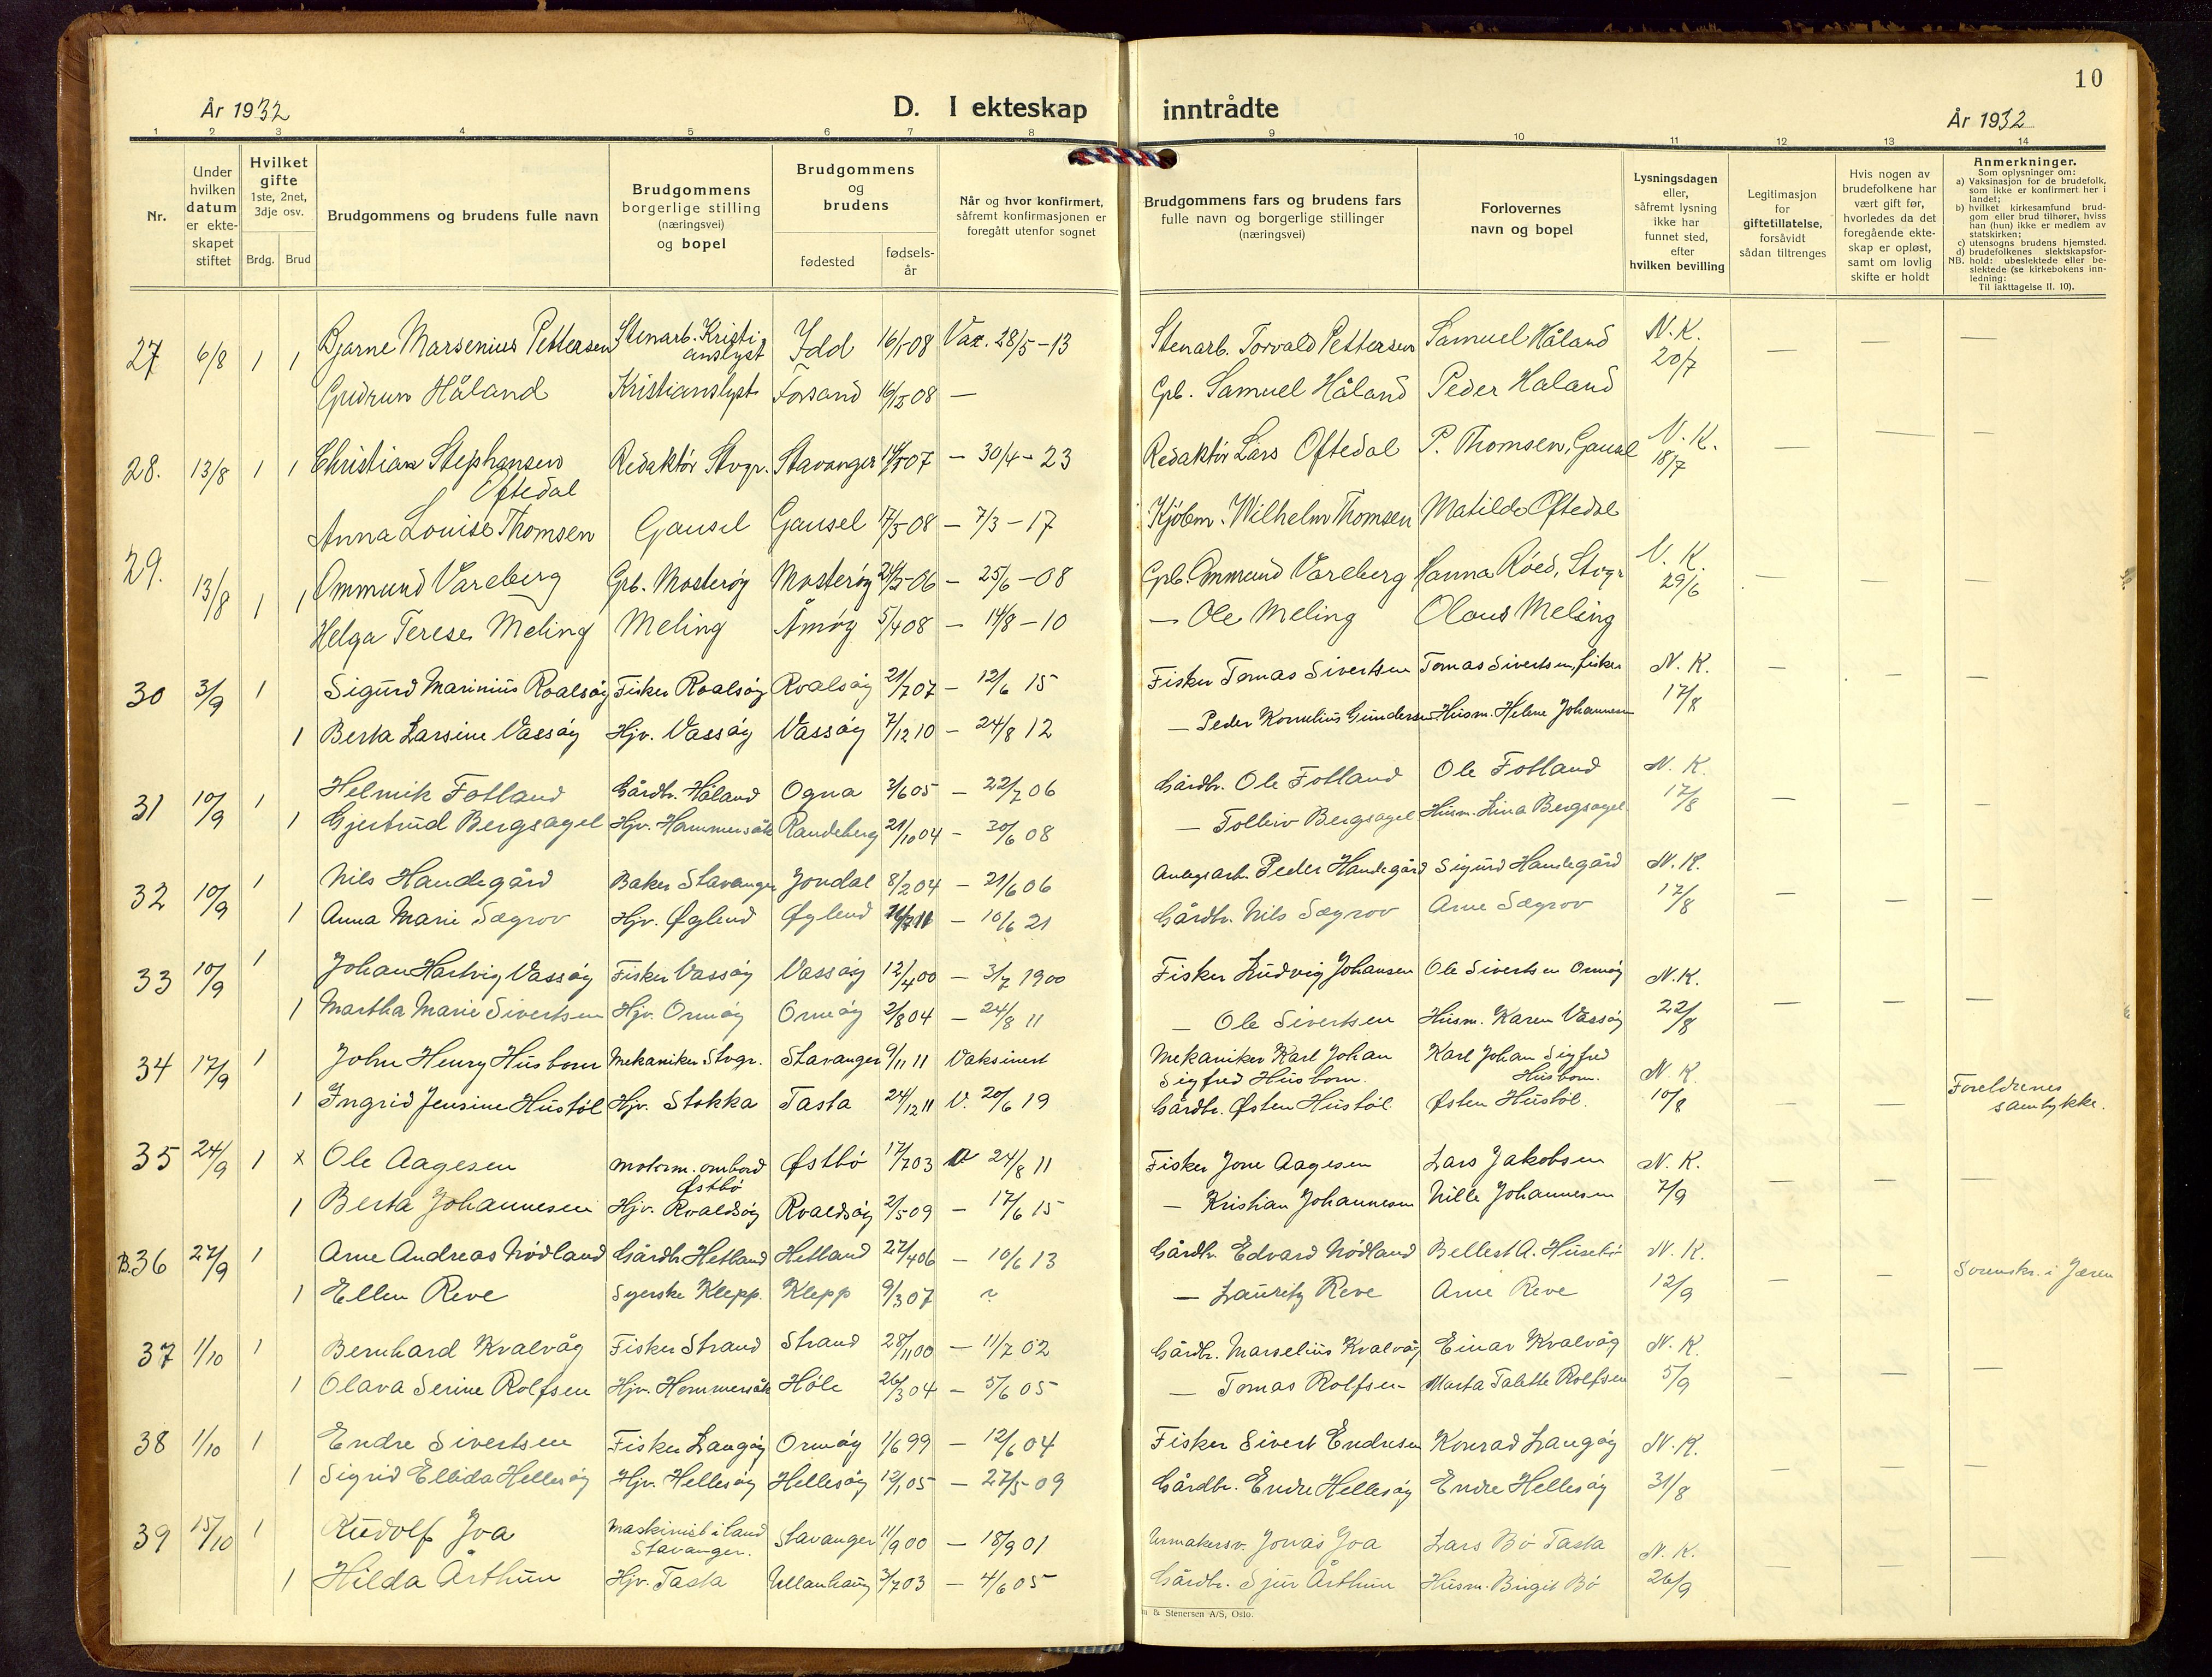 10
År 1932
D. I ekteskap inntrådte
År 1932
1 2 3 4 5 6 7 8 9 10 11 12 13 14
Nr.
Under hvilken datum er ekteskapet stiftet
Hvilket gifte 1ste, 2net, 3dje osv.
Brdg. Brud
Brudgommens og brudens fulle navn
Brudgommens borgerlige stilling (næringsvei) og bopel
Brudgommens og brudens
fødested
fødsels-år
Når og hvor konfirmert, såfremt konfirmasjonen er foregått utenfor sognet
Brudgommens fars og brudens fars fulle navn og borgerlige stillinger (næringsvei)
Forlovernes navn og bopel
Lysningsdagen eller, såfremt lysning ikke har funnet sted, efter hvilken bevilling
Legitimasjon for giftetillatelse, forsåvidt sådan tiltrenges
Hvis nogen av brudefolkene har vært gift før, hvorledes da det foregående ekteskap er opløst, samt om lovlig skifte er holdt
Anmerkninger.
Som oplysninger om:
a) Vaksinasjon for de brudefolk, som ikke er konfirmert her i landet;
b) hvilket kirkesamfund brudgom eller brud tilhører, hviss han (hun) ikke er medlem av statskirken;
c) utensogns brudens hjemsted.
d) brudefolkenes slektskapsforhold: ubeslektede eller beslektede (se kirkebokens innledning:
NB.
Til iakttagelse II. 10).
27 6/8 1 1 Bjarne Marsenius Pettersen Stenarb. Kristianslyst Idd 16/1-08 Vax. 28/5-13 Stenarb. Torvald Pettersen Samuel Håland N. K. 20/7 — — —
Gudrun Håland Kristianslyst Forsand 16/12 08 — Gpb. Samuel Håland Peder Haland
28. 13/8 1 1 Christian Stephansen Oftedal Redaktør Stvgr. Stavanger 07 — 30/4-23 Redaktør Lars Oftedal P. Thomsen, Gausel N. K. 18/7 — — —
Anna Louise Thomsen Gausel Gausel 17/5-08 — 7/3-17 Kjøbm. Wilhelm Thomsen Matilde Oftedal
29. 13/8 1 1 Ommund Vareberg Gpb. Mosterøy Mosterøy 06 — 25/6-08 Gpb. Ommund Vareberg Hanna Røed, Stvgr N. K. 29/6 — —
Helga Terese Meling Meling Åmøy 5/4 08 — 14/8-10 — Ole Meling Olaus Meling
30 3/9 1 Sigurd Marinius Roalsøy Fisker Roalsøy Roalsøy 21/7 07 — 12/6 15 Fisker Tomas Sivertsen Tomas Sivertsen, fisker N. K. 17/8 — — —
1 Berta Larsine Vassøy Hjv. Vassøy Vassøy 7/12 10 — 24/8 12 — Peder Kornelius Gundersen Husm. Helene Johannesen
31 10/9 1 Helmik Fotland Gårdbr. Håland Ogna 3/6 05 — 22/7 06 Gårdbr. Ole Fotland Ole Fotland N. K. 17/8 — — —
1 Gjertrud Bergsagel Hjv. Hammersåk Randeberg 21/10 04 — 30/6 08 — Tolleiv Bergsagel Husm. Lina Bergsagel
32 10/9 1 Nils Handegård Baker Stavanger Jondal 8/2 04 — 21/6 06 Anlegsarb. Peder Handegård Sigurd Handegård N. K. 17/8 — — —
1 Anna Marie Sægrov Hjv. Øglend Øglend — 10/6 21 Gårdbr. Nils Sægrov Arne Sægrov
33 10/9 1 Johan Hartvig Vassøy Fisker Vassøy Vassøy 12/4 00 — 3/7 1900 Fisker Ludvig Johansen Ole Sivertsen Ormøy N. K. 22/8 — — —
1 Martha Marie Sivertsen Hjv. Ormøy Ormøy 2/8 04 — 24/8 11 — Ole Sivertsen Husm. Karen Vassøy
34 17/9 1 John Henry Husborn Mekaniker Stvgr. Stavanger 9/11 11 Vaksinert Mekaniker Karl Johan Sigfred Husborn. Karl Johan Sigfred Husborn. N. K. 10/8 — — Foreldrenes samtykke.
1 Ingrid Jensine Hustøl Hjv. Stokka Tasta 24/12 11 V. 20/6 19 Gårdbr. Østen Hustøl Østen Hustøl
35 24/9 1 x Ole Aagesen motorm. ombord Østbø Østbø 17/7 03 V 24/8 11 Fisker Jone Aagesen Lars Jakobsen N. K. 7/9 — — —
1 Berta Johannesen Hjv. Roaldsøy Roaldsøy 2/5 09 — 17/6 15 — Kristian Johannesen Nille Johannesen
B. 36 27/9 1 Arne Andreas Nødland Gårdbr. Hetland Hetland 27/4 06 — 10/6 13 Gårdbr. Edvard Nødland Bellest A. Husebø N. K. 12/9 — — Sorenskr. i Jæren
1 Ellen Reve Syerske Klepp. Klepp 9/3 07 ~ — Lauritz Reve Arne Reve
37 1/10 1 Bernhard Kvalvåg Fisker Strand Strand 28/11 00 — 11/7 02 Gårdbr. Marselius Kvalvåg Einar Kvalvåg N. K. 5/9 — — —
1 Olava Serine Rolfsen Hjv. Hommersåk Høle 26/3 04 — 5/6 05 — Tomas Rolfsen Marta Talette Rolfsen
38 1/10 1 Endre Sivertsen Fisker Langøy Ormøy 1/6 99 — 12/6 04 Fisker Sivert Endresen Konrad Langøy N. K. 31/8 — — —
1 Sigrid Ellida Hellesøy Hjv. Hellesøy Hellesøy 12/1 05 — 27/5 09 Gårdbr. Endre Hellesøy Endre Hellesøy
39 15/10 1 Rudolf Joa Maskinist i land Stavanger. Stavanger 11/9 00 — 18/9 01 Urmakersv. Jonas Joa Lars Bø Tasta N. K. 26/9 — — —
1 Hilda Årthun Hjv. Tasta Ullanhaug 3/7 03 — 4/6 05 Gårdbr. Sjur Årthun Husm. Birgit Bø
& Stenersen A/S, Oslo.